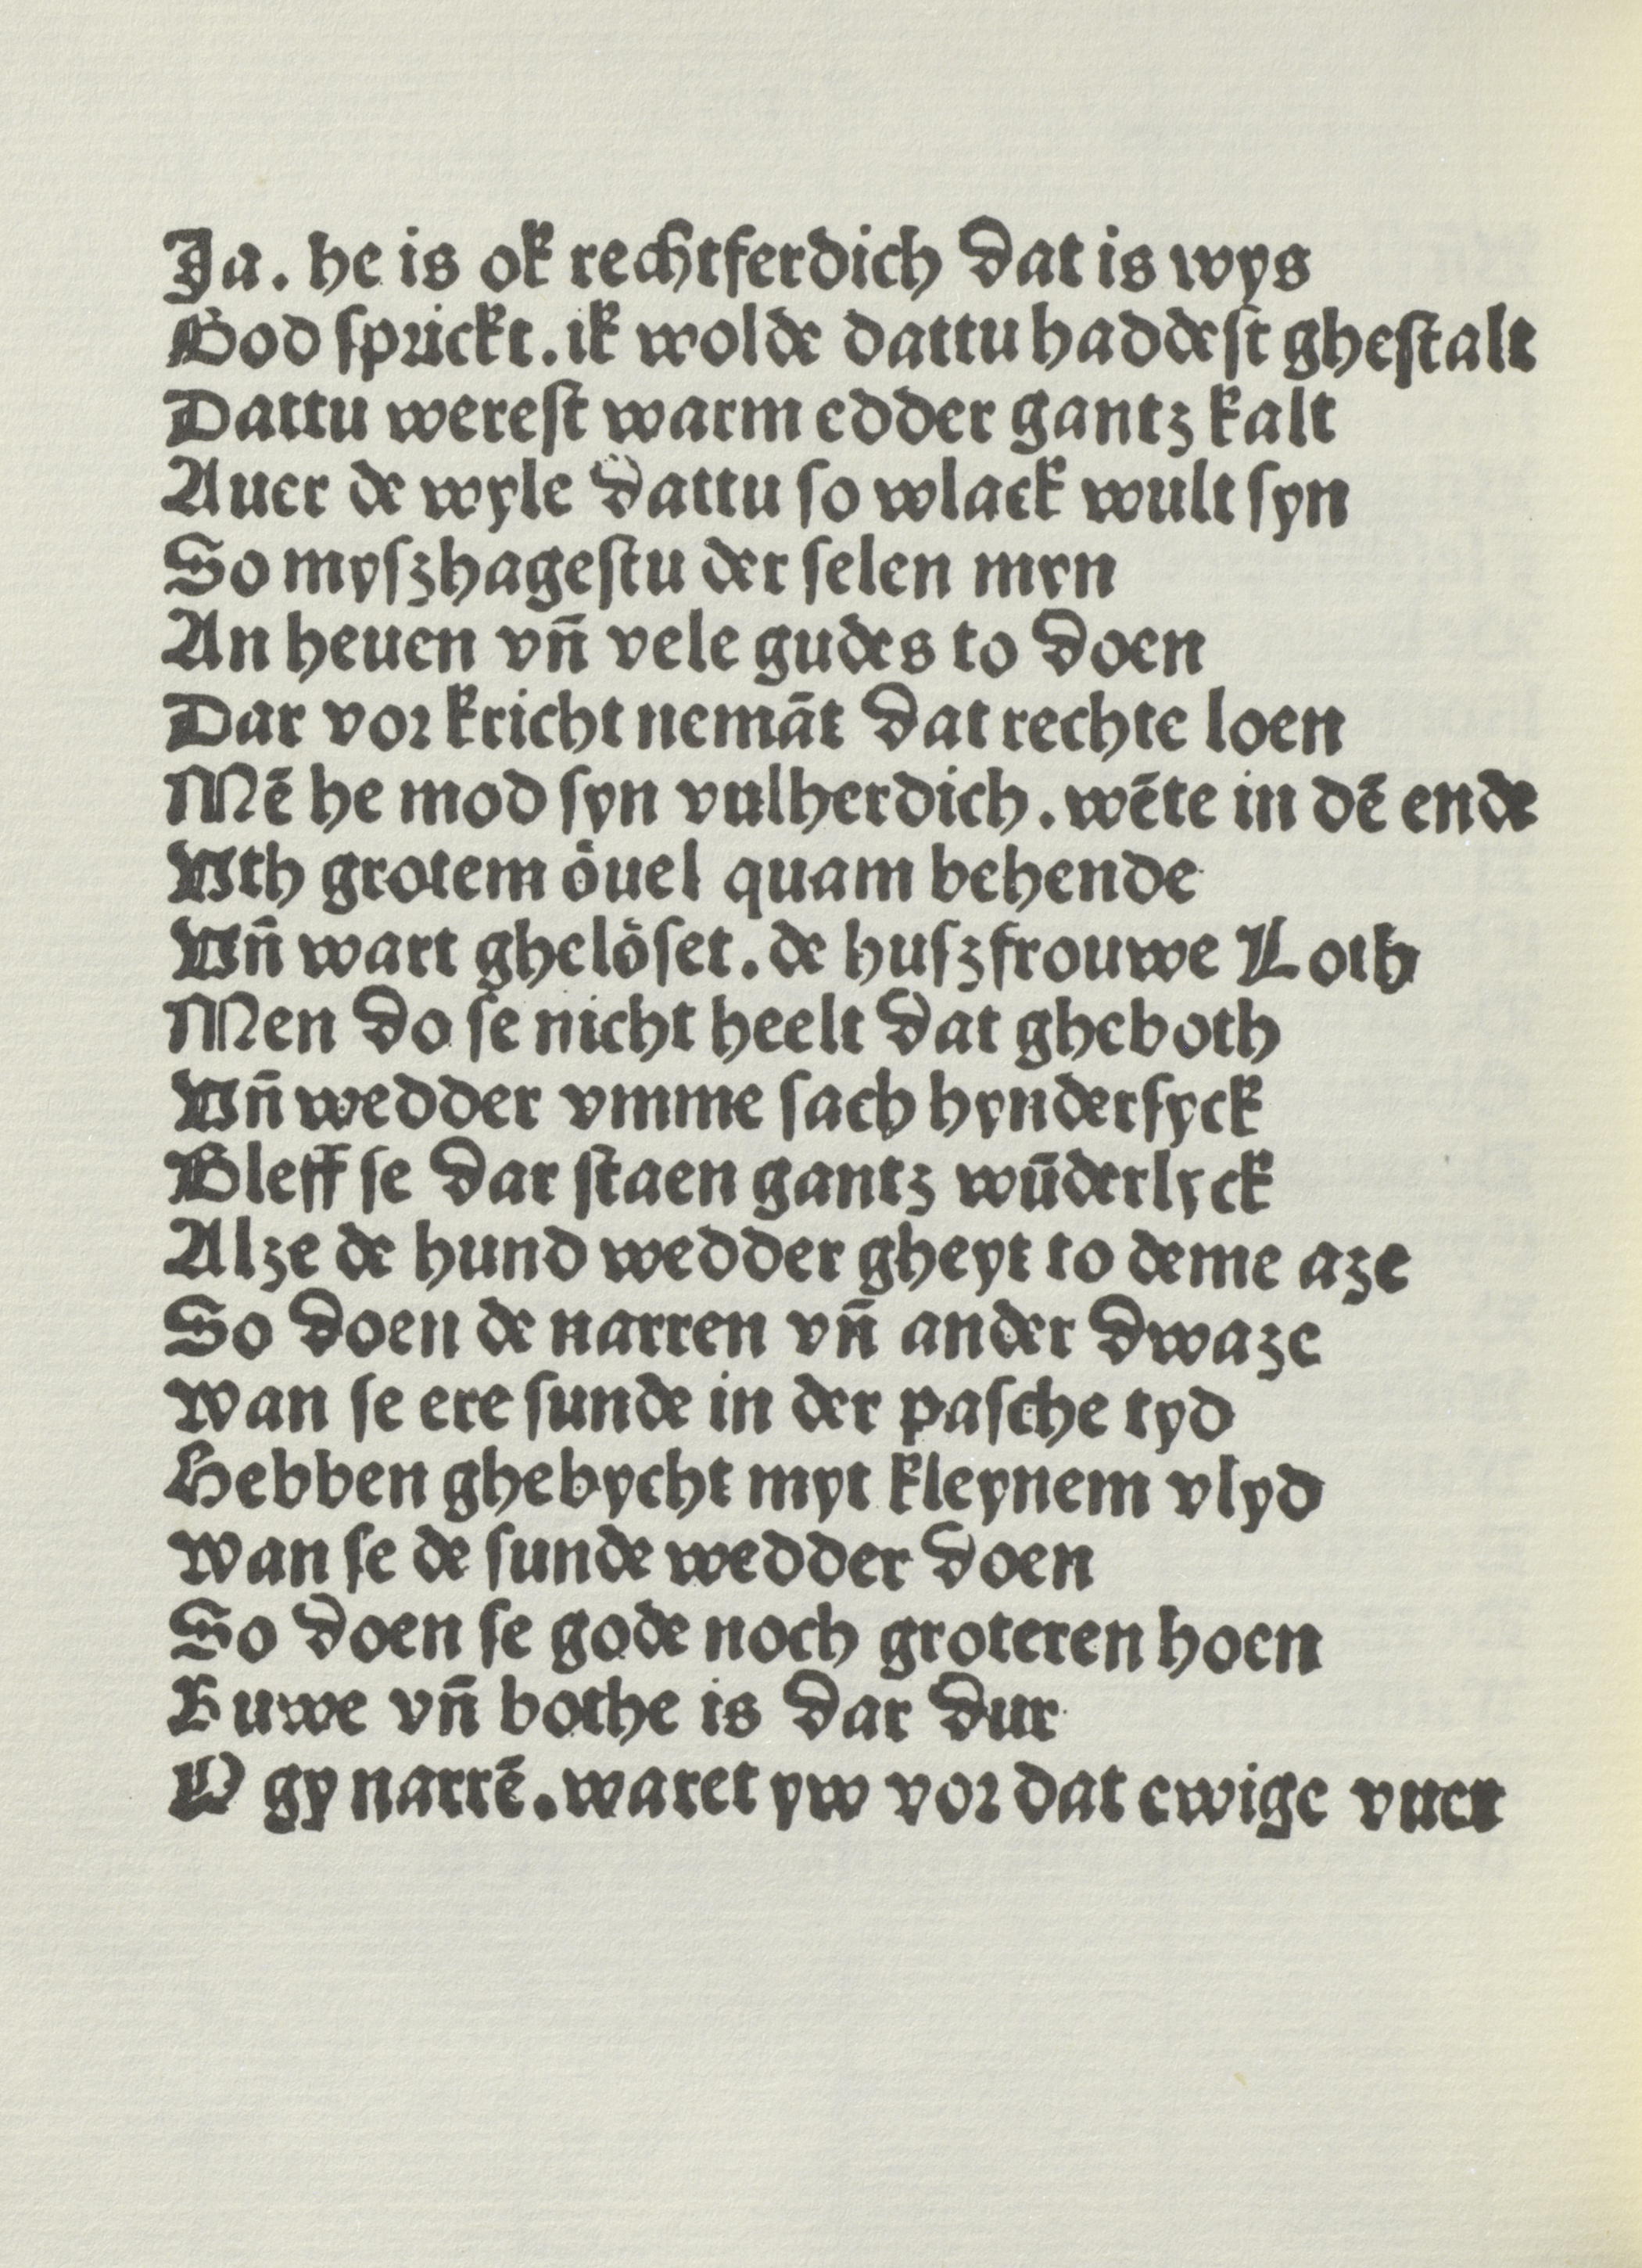 Ja. he is ok rechtferdich dat is wys
God sprickt. ik wolde dattu haddest ghestalt
Dattu werest warm edder gantz kalt
Auer de wyle dattu so wlack wult syn
So myszhagestu der selen myn
An heuen vn̄ vele gudes to doen
Dar vor kricht nemāt dat rechte loen
Mē he mod syn vulherdich. wēte in dē ende
Vth grotem öuel quam behende
Vn̄ wart ghelöset. de huszfrouwe Loth
Men do se nicht heelt dat gheboth
Vn̄ wedder vmme sach hyndersyck
Bleff se dar staen gantz wūderlyck
Alze de hund wedder gheyt to deme aze
So doen de narren vn̄ ander dwaze
Wan se ere sunde in der pasche tyd
Hebben ghebycht myt kleynem vlyd
Wan se de sunde wedder doen
So doen se gode noch groteren hoen
Ruwe vn̄ bothe is dar dur
O gy narrē. waret yw vor dat ewige vuer